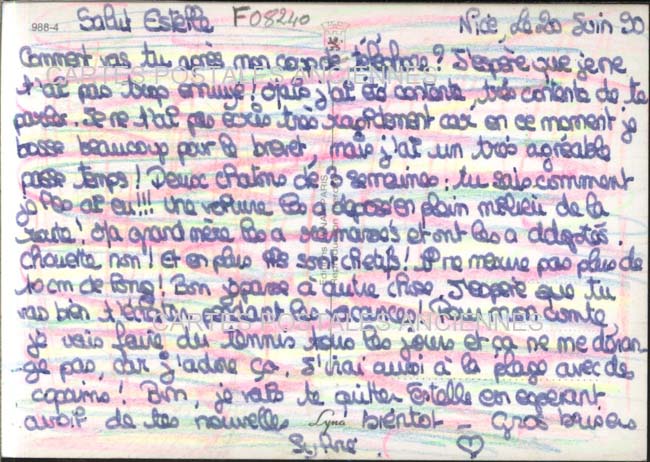 988-4
Salut Estelle F08240 Nice, Le 20 Juin 90
Comment vas tu après mon coup de téléphone? J'espère que je ne
t'ai pas trop ennuyé! Mais j'ai été contente, très contente de te
parler. Je ne t'ai pas écris très rapidement car en ce moment je
CARTES POSTALES ANCIENNES
bosse beaucoup pour le brevet mais j'ai un très agréable
passe temps! Deux chatons de 3 semaines: tu sais comment
je les ai eu!!! Une voiture les a déposés en plein milieu de la
route! Ma grand mère les a ramassés et ont les a adoptés.
chouette non! Et en plus ils sont chetifs! Il ne mesure pas plus de
10 cm de long! Bon, passe à autre chose. J'espère que tu
vas bien t'éclater pendant les vacances! Pour mon compte,
CARTES POSTALES ANCIENNES
je vais faire du Tennis tous les jours et ça ne me déran-
ge pas, car j'adore ça. J'irai aussi à la plage avec des
copains! Bon, je vais te quitter Estelle en espérant
avoir de tes nouvelles bientôt - Gros bisous
Lyna